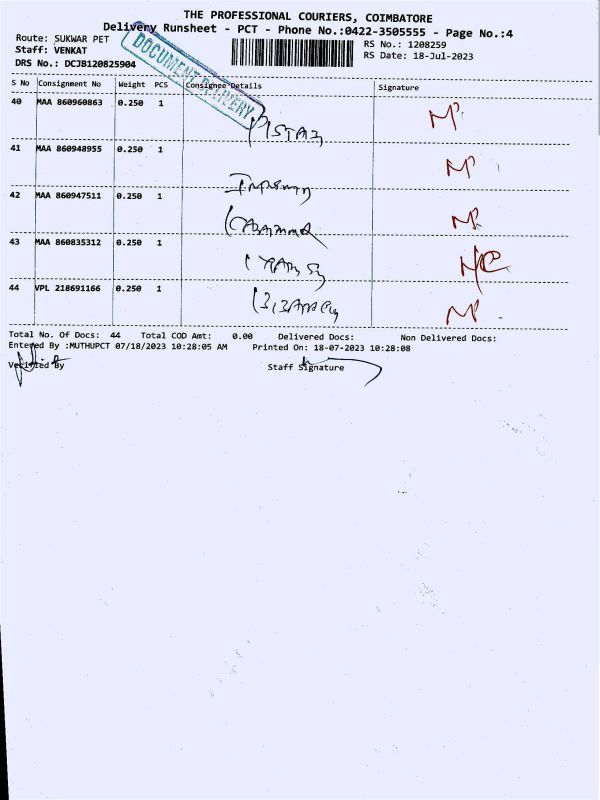 THE PROFESSIONAL COURIERS, COIMBATORE
Delivery Runsheet - PCT - Phone No.:0422-3505555 - Page No.:4
Route: SUKWAR PET
RS No.: 1208259
Staff: VENKAT
RS Date: 18-Jul-2023
DRS No.: DCJB120825904
DOCUMENT DELIVERY
S No Consignment No Weight PCS Consignee Details Signature
40 MAA 860960863 0.250 1
41 MAA 860948955 0.250 1
42 MAA 860947511 0.250 1
43 MAA 860835312 0.250 1
44 VPL 218691166 0.250 1
Total No. Of Docs: 44 Total COD Amt: 0.00 Delivered Docs: Non Delivered Docs:
Entered By :MUTHUPCT 07/18/2023 10:28:05 AM Printed On: 18-07-2023 10:28:08
Verified By Staff Signature